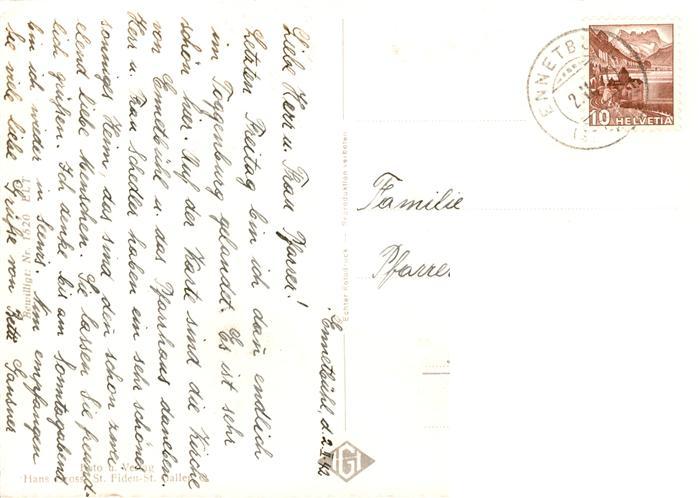 Ennetbühl, d. 2.II.42
Liebe Herr u. Frau Pfarrer!
Letzten Freitag bin ich dañ endlich
im Toggenburg gelandet. Es ist sehr
schön hier. Auf der Karte sind die Kirche
von Ennetbühl u. das Pfarrhaus daneben.
Herr u. Frau Scheder haben ein sehr schönes
sonniges Heim, das sind deñ schon zwei
elend liebe Menschen. Sie lassen Sie freund-
lich grüßen. Ich denke bis am Sonntagabend
bin ich wieder in Sents. Nun empfangen
Sie viele liebe Grüße von Betti Gansner
Familie
Pfarrer
ENNETB
2.
10 HELVETIA
Echter Rotodruck — Reproduktion verboten
IGI
Foto u. Verlag
Hans Gross, St. Fiden-St. Gallen
Bewilligt Nr.